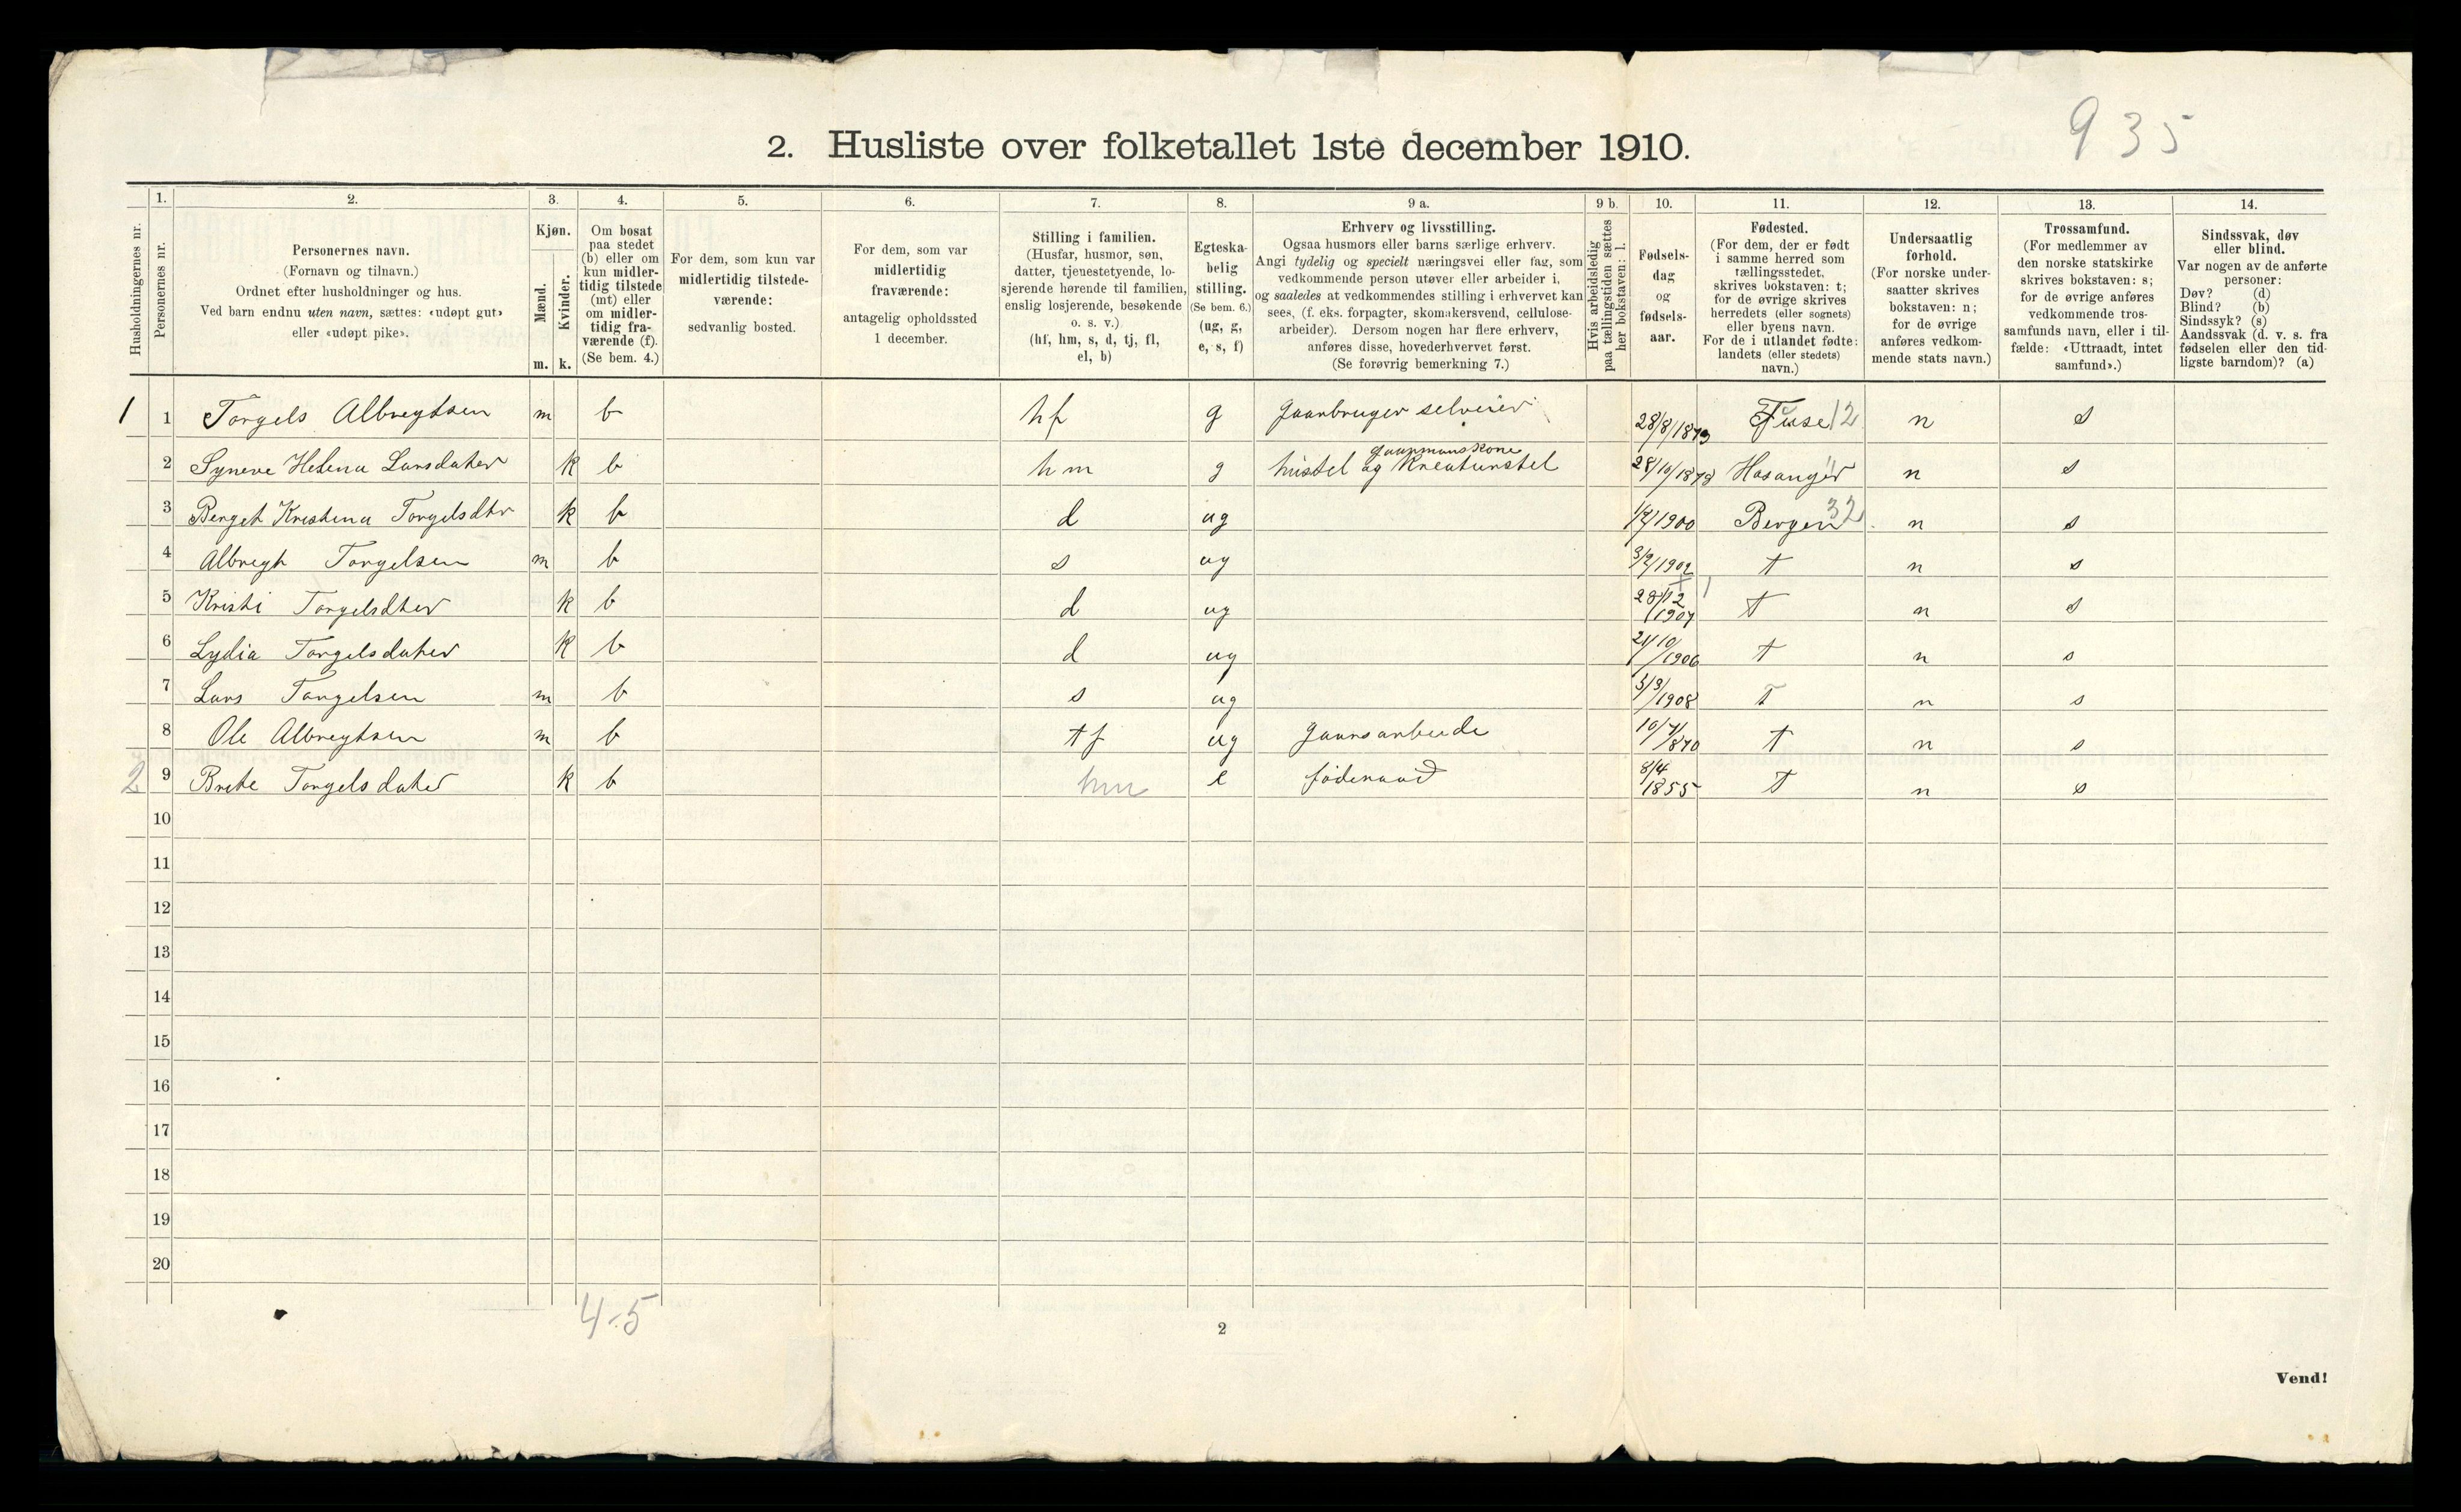 935
2. Husliste over folketallet 1ste december 1910.
Husholdningernes nr.
1.
Personernes nr.
2.
Personernes navn.
(Fornavn og tilnavn.)
Ordnet efter husholdninger og hus.
Ved barn endnu uten navn, sættes: «udøpt gut»
eller «udøpt pike».
3.
Kjøn.
Mænd.
Kvinder.
m. k.
4.
Om bosat
paa stedet
(b) eller om
kun midler-
tidig tilstede
(mt) eller
om midler-
tidig fra-
værende (f).
(Se bem. 4.)
5.
For dem, som kun var
midlertidig tilstede-
værende:
sedvanlig bosted.
6.
For dem, som var
midlertidig
fraværende:
antagelig opholdssted
1 december.
7.
Stilling i familien.
(Husfar, husmor, søn,
datter, tjenestetyende, lo-
sjerende hørende til familien,
enslig losjerende, besøkende
o. s. v.)
(hf, hm, s, d, tj, fl,
el, b)
8.
Egteska-
belig
stilling.
(Se bem. 6.)
(ug, g,
e, s, f)
9 a.
Erhverv og livsstilling.
Ogsaa husmors eller barns særlige erhverv.
Angi tydelig og specielt næringsvei eller fag, som
vedkommende person utøver eller arbeider i,
og saaledes at vedkommendes stilling i erhvervet kan
sees, (f. eks. forpagter, skomakersvend, cellulose-
arbeider). Dersom nogen har flere erhverv,
anføres disse, hovederhvervet først.
(Se forøvrig bemerkning 7.)
9 b.
Hvis arbeidsledig
paa tællingstiden sættes
her bokstaven: l.
10.
Fødsels-
dag
og
fødsels-
aar.
11.
Fødested.
(For dem, der er født
i samme herred som
tællingsstedet,
skrives bokstaven: t;
for de øvrige skrives
herredets (eller sognets)
eller byens navn.
For de i utlandet fødte:
landets (eller stedets)
navn.)
12.
Undersaatlig
forhold.
(For norske under-
saatter skrives
bokstaven: n;
for de øvrige
anføres vedkom-
mende stats navn.)
13.
Trossamfund.
(For medlemmer av
den norske statskirke
skrives bokstaven: s;
for de øvrige anføres
vedkommende tros-
samfunds navn, eller i til-
fælde: «Uttraadt, intet
samfund».)
14.
Sindssvak, døv
eller blind.
Var nogen av de anførte
personer:
Døv? (d)
Blind? (b)
Sindssyk? (s)
Aandssvak (d. v. s. fra
fødselen eller den tid-
ligste barndom)? (a)
1 1 Torgels Albregtsen m b hf g gaarbruger selveier 28/8/1873 Fuse 12 n s
gaarmanskone
2 Syneve Helena Larsdater k b hm g hustel og Kreaturstel 28/10/1878 Hosanger n s
3 Berget Kristina Torgelsdtr k b d ug 1900 Bergen 32 n s
4 Albregt Torgelsen m b s ug 3/2/1902 t n s
5 Kristi Torgelsdter k b d ug 28/12 1904 t n s
6 Lydia Torgelsdater k b d ug 21/10/1906 t n s
7 Lars Torgelsen m b s ug 3/3/1908 t n s
8 Ole Albregtsen m b tj ug gaarsarbeide 10/4/1870 t n s
2 9 Brete Torgelsdater k b hm e føderaad 8/4 1855 t n s
10
11
12
13
14
15
16
17
18
19
20
4-5
2
Vend!